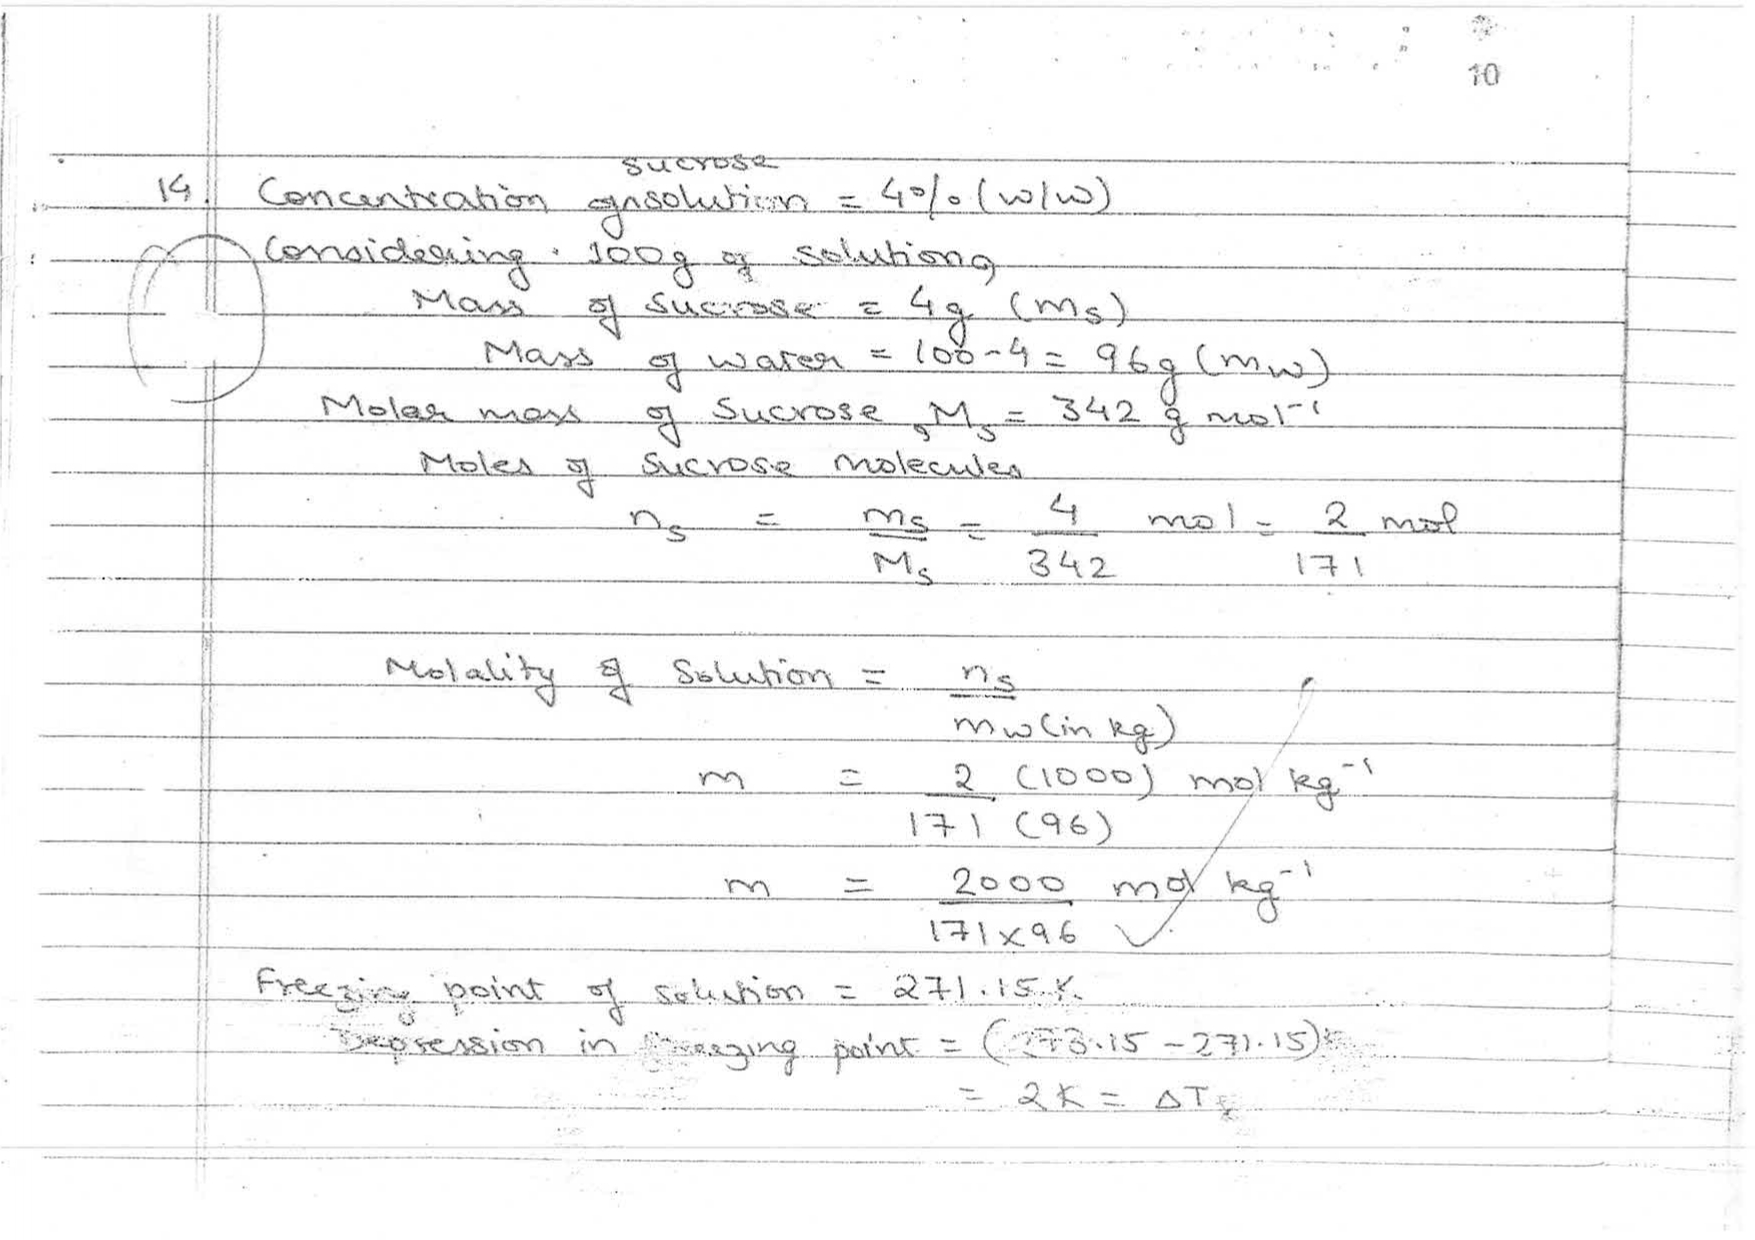 10
sucrose
14. Concentration of solution = 4% (w/w)
Considering 100g of solution,
Mass of sucrose = 4g (ms)
Mass of water = 100-4 = 96g (mw)
Molar mass of Sucrose, Ms = 342 g mol⁻¹
Moles of Sucrose molecules
ns = ms/Ms = 4/342 mol = 2/171 mol
Molality of Solution = ns/mw(in kg)
m = 2 (1000)/171 (96) mol kg⁻¹
m = 2000/171×96 mol kg⁻¹
Freezing point of solution = 271.15 K.
Depression in freezing point = (273.15 - 271.15)K
= 2K = ΔTf